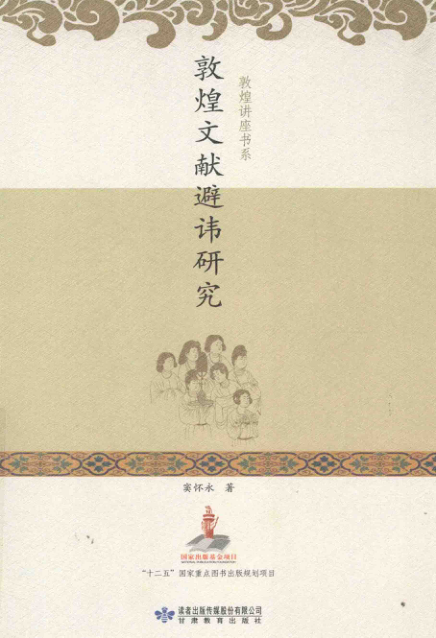 敦煌讲座书系
敦煌文献避讳研究
窦怀永 著
国家出版基金项目
NATIONAL PUBLICATION FOUNDATION
“十二五”国家重点图书出版规划项目
读者出版传媒股份有限公司
甘肃教育出版社